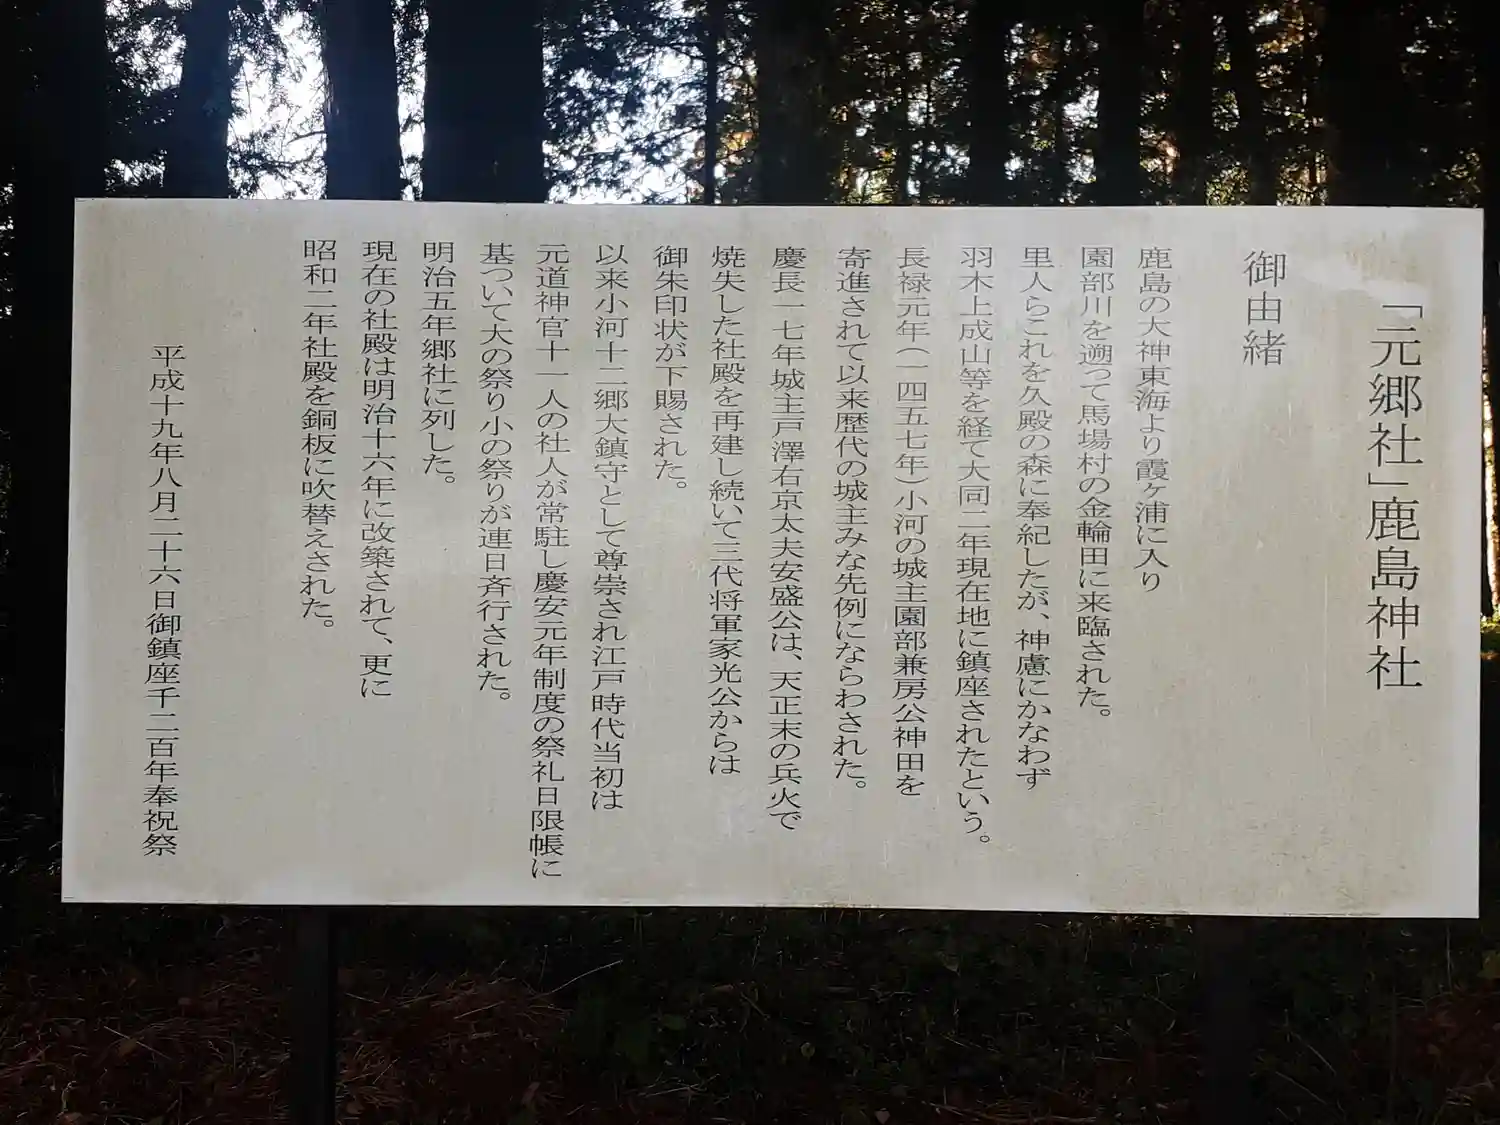 「元郷社」鹿島神社
御由緒
鹿島の大神東海より霞ヶ浦に入り
園部川を遡って馬場村の金輪田に来臨された。
里人らこれを久殿の森に奉紀したが、神慮にかなわず
羽木上成山等を経て大同二年現在地に鎮座されたという。
長禄元年(一四五七年)小河の城主園部兼房公神田を
寄進されて以来歴代の城主みな先例にならわされた。
慶長一七年城主戸澤右京太夫安盛公は、天正末の兵火で
焼失した社殿を再建し続いて三代将軍家光公からは
御朱印状が下賜された。
以来小河十二郷大鎮守として尊崇され江戸時代当初は
元道神官十一人の社人が常駐し慶安元年制度の祭礼日限帳に
基ついて大の祭り小の祭りが連日斉行された。
明治五年郷社に列した。
現在の社殿は明治十六年に改築されて、更に
昭和二年社殿を銅板に吹替えされた。
平成十九年八月二十六日御鎮座千二百年奉祝祭